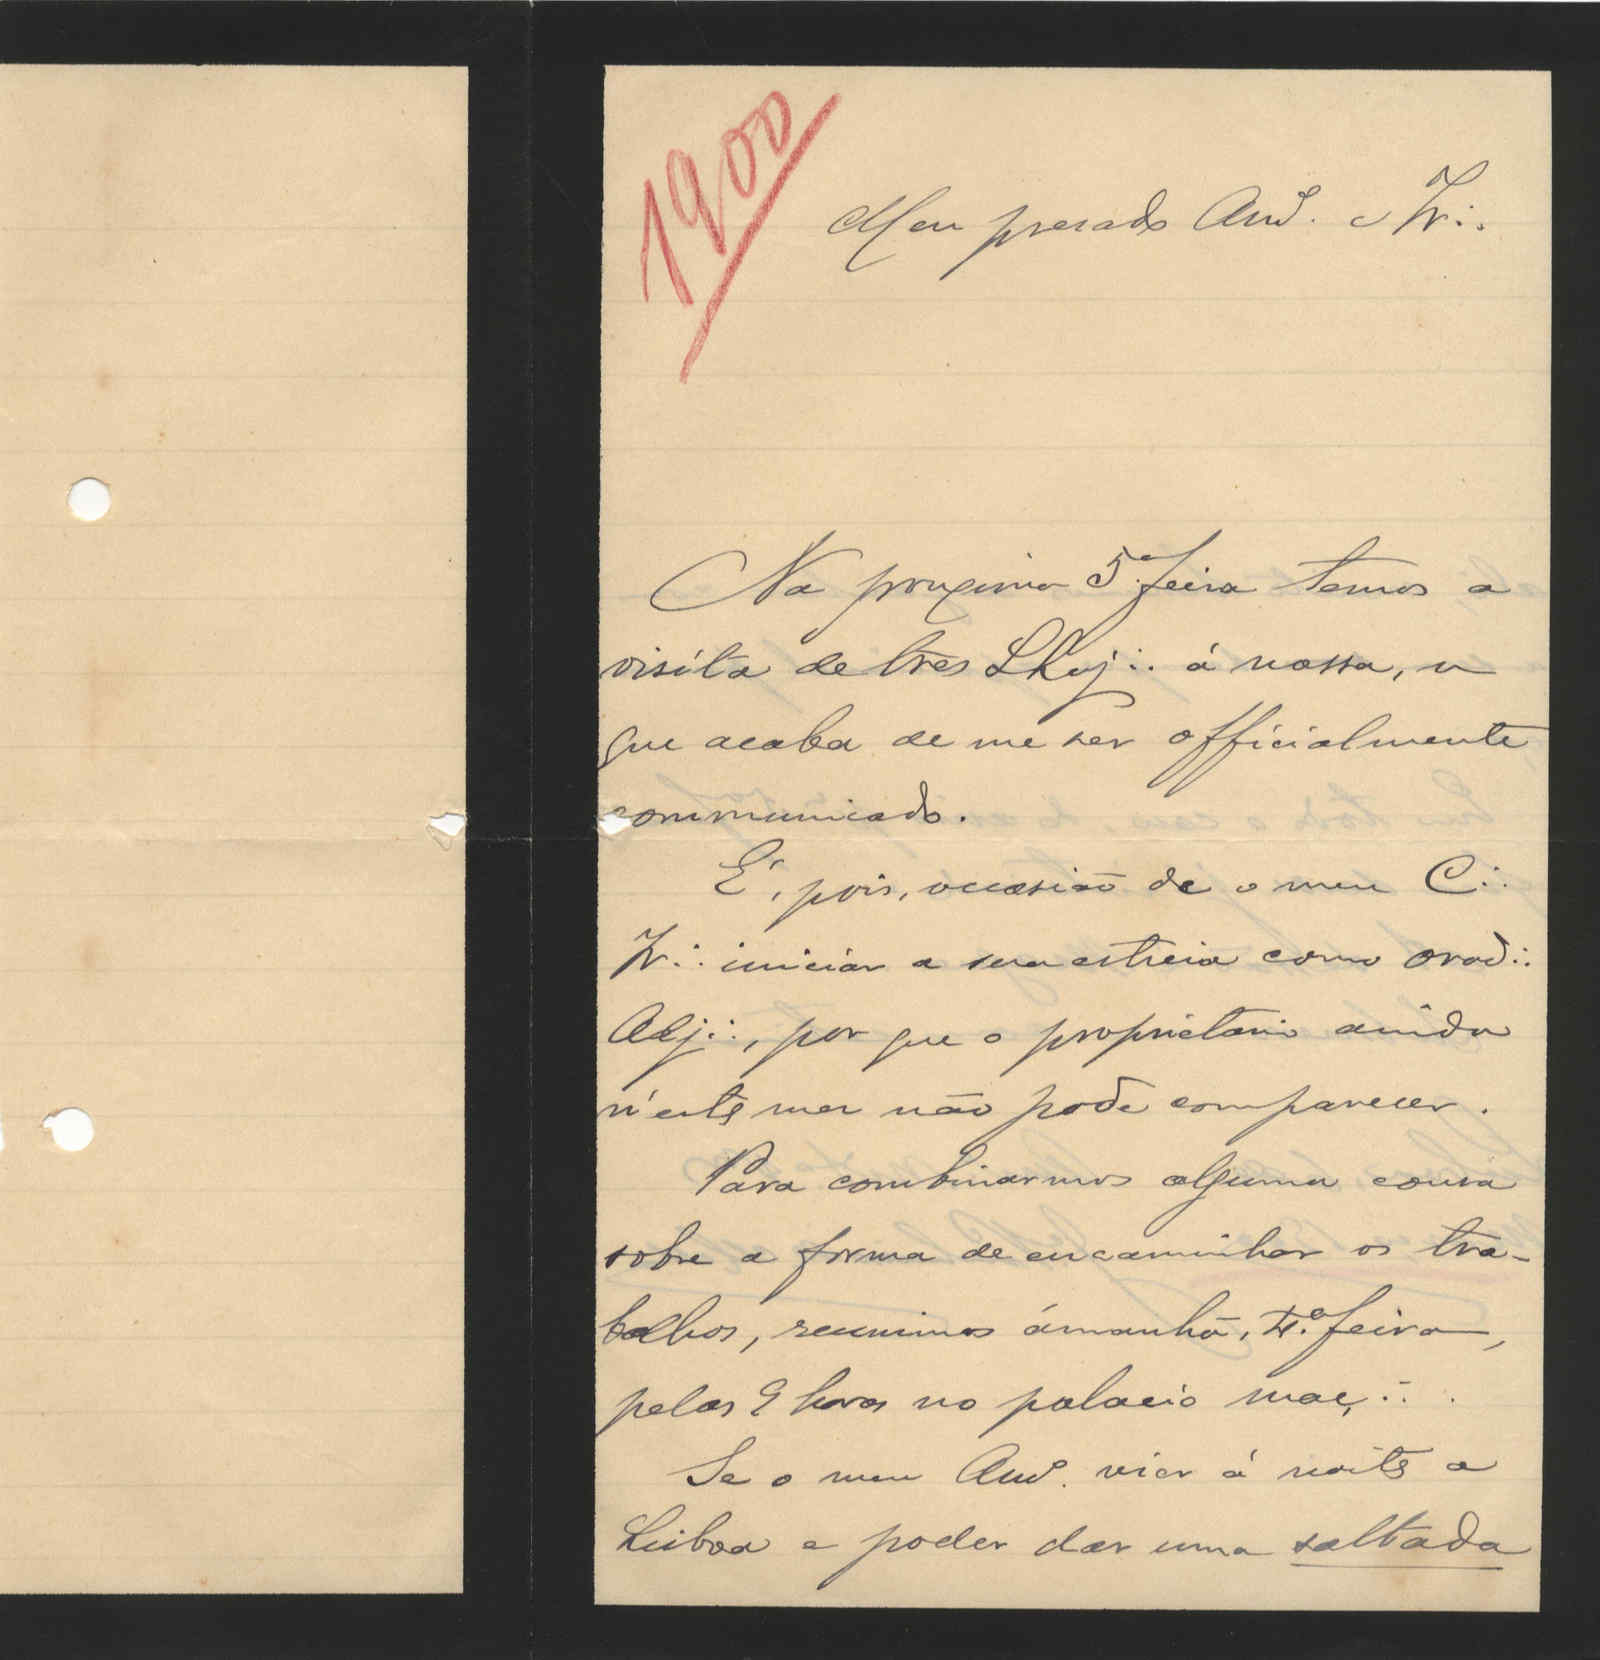 1900
Meu presado Amº. e Ir∴
Na proxima 5ª feira temos a
visita de tres LLoj∴ á nossa, o
que acaba de me ser officialmente
communicado.
É, pois, occasião de o meu C∴
Ir∴ iniciar a sua estreia como Orad∴
Adj∴, por que o proprietario ainda
n'este mez não pode comparecer.
Para combinarmos alguma cousa
sobre a forma de encaminhar os tra-
balhos, reunimos ámanhã, 4ª. feira,
pelas 9 horas no palacio maç∴.
Se o meu Amº. vier á noite a
Lisboa e poder dar uma saltada